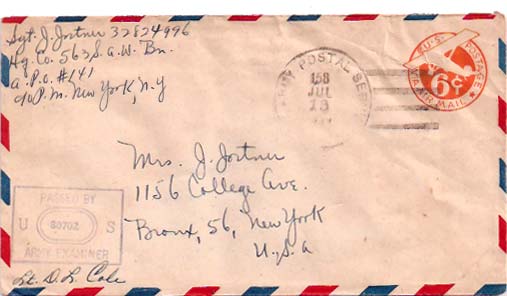 Sgt. J. Jortner 32824996
Hq. Co. 563 S.A.W. Bn.
A.P.O. #141
c/o P.M. New York, N.Y
ARMY POSTAL SERVICE
158
JUL
13
U.S. POSTAGE
6¢
VIA AIR MAIL
Mrs. J. Jortner
1156 College Ave.
Bronx, 56, New York
U.S.A
PASSED BY
U 60702 S
ARMY EXAMINER
Lt. D. L. Cole